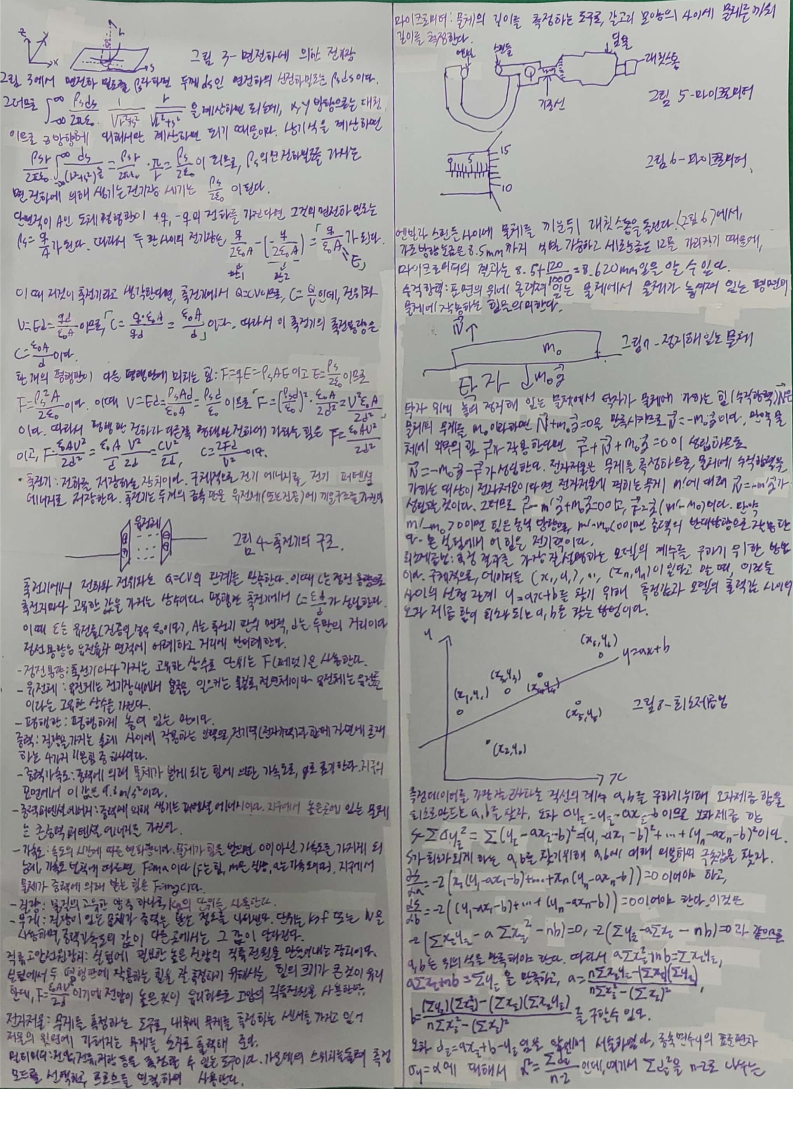 그림 3-면전하에 의한 전기장
그림 3에서 면전하 밀도를 ρs라하면 두께 ds인 면전하의 선전하밀도는 ρs ds이다.
그러므로 ∫ ρs ds/2πε₀ 1/√(h²+s²) h/√(h²+s²) 을 계산하면 되는데, x,y 방향으로는 대칭
이므로 z방향에 대해서만 계산하면 되기 때문이다. 상기식을 계산하면
ρs h/2πε₀ ∫ ds/(h²+s²) = ρs h/2πε₀ · π/h = ρs/2ε₀ 이므로, ρs의 면전하밀도를 가지는
면전하에 의해 생기는 전기장 세기는 ρs/2ε₀ 이 된다.
단면적이 A인 도체 평행판이 +q, -q의 전하를 가진다면, 그것의 면전하밀도는
ρs = q/A가 된다. 따라서 두 판 사이의 전기장은, q/2ε₀A - (-q/2ε₀A) = q/ε₀A 가 된다.
판1 판2 = E
이 때 저것이 축전기라고 생각한다면, 축전기에서 Q=CV이므로, C=Q/V인데, 전위차
V=Ed=qd/ε₀A 이므로, C = q·ε₀A/qd = ε₀A/d 이다. 따라서 이 축전기의 축전용량은
C=ε₀A/d 이다.
한 개의 평행판이 다른 평행판에 미치는 힘: F=qE=ρsAE 이고 E=ρs/2ε₀이므로
F=ρs²A/2ε₀이다. 이때 V=Ed=ρsAd/ε₀A=ρsd/ε₀ 이므로 F=(ρsd/ε₀)²·ε₀A/2d²=V²ε₀A/2d²
이다. 따라서 평행판 전하가 다른쪽 평행판전하에 가하는 힘은 F=ε₀AV²/2d²
이고, F=ε₀AV²/2d²=ε₀A/d V²/2d=CV²/2d, C=2Fd/V² 이다.
• 축전기: 전하를 저장하는 장치이다. 구체적으로 전기 에너지를 전기 퍼텐셜
에너지로 저장한다. 축전기는 두개의 금속판은 유전체(또는진공)에 끼운구조를 가진다
유전체
그림 4-축전기의 구조.
축전기에서 전하와 전위차는 Q=CV의 관계를 만족한다. 이때 C는 정전용량으로
축전기마다 고유한 값을 가지는 상수이다. 평행판 축전기에서 C=εA/d 가 성립한다.
이때 ε은 유전율(진공인 경우 ε₀이다), A는 축전기 판의 면적, d는 두판의 거리이다
정전용량은 유전율과 면적에 비례하고 거리에 반비례한다.
-정전용량: 축전기마다 가지는 고유한 상수로 단위는 F(패럿)을 사용한다.
-유전체: 유전체는 전기장 내에서 분극을 일으키는 물질로, 절연체이다. 유전체는 유전율
이라는 고유한 상수를 가진다.
-평행판: 평행하게 놓여 있는 판이다.
중력: 질량을 가지는 물체 사이에 작용하는 인력으로, 전기력(전자기력)과 함께 자연에 존재
하는 4가지 기본힘 중 하나이다.
-중력가속도: 중력에 의해 물체가 받게 되는 힘에 의한 가속도로, g로 표기한다. 지구의
표면에서 이 값은 9.8m/s²이다.
-중력퍼텐셜에너지: 중력에 의해 생기는 퍼텐셜 에너지이다. 지구에서 높은곳에 있는 물체
는 큰중력퍼텐셜 에너지를 가진다.
-가속도: 속도의 시간에 따른 변화율이다. 물체가 힘을 받으면 0이 아닌 가속도를 가지게 되
는데, 가속도 법칙에 따르면 F=ma이다 (F는 힘, m은 질량, a는 가속도이다), 지구에서
물체가 중력에 의해 받는 힘은 F=mg이다.
-질량: 물질의 고유한 양 중 하나로, kg의 단위를 사용한다.
-무게: 질량이 있는 물체가 중력을 받는 정도를 나타낸다. 단위는 kgf 또는 N을
사용하며, 중력가속도의 값이 다른곳에서는 그 값이 달라진다.
직류고압전원장치: 실험에 필요한 높은 전압의 직류전원을 만들어내는 장치이다.
실험에서 두 평행판에 작용하는 힘을 잘 측정하기 위해서는 힘의 크기가 큰 것이 유리
한데, F=ε₀AV²/2d² 이기에 전압이 높은 것이 유리하므로 고압의 직류전원을 사용한다.
전자저울: 무게를 측정하는 도구로, 내부에 무게를 측정하는 센서를 가지고 있어
저울의 윗면에 가해지는 무게를 숫자로 출력해 준다.
멀티미터: 전압, 전류, 저항 등을 측정할 수 있는 도구이다. 가운데의 스위치를 돌려 측정
모드를 선택하고 프로브를 연결하여 사용한다.
마이크로미터: 물체의 길이를 측정하는 도구로, 갈고리 모양의 사이에 물체를 끼워
길이를 측정한다.
엔빌 스핀들 딤블
래칫스톱
기준선
그림 5-마이크로미터
0 5
15
10
그림 6-마이크로미터
엔빌과 스핀들 사이에 물체를 끼운 뒤 래칫스톱을 돌린다. (그림 6)에서,
가로방향 눈금은 8.5mm까지 식별 가능하고 세로눈금은 12를 가리키기 때문에,
마이크로미터의 결과는 8.5+120/1000=8.620mm임을 알 수 있다.
수직항력: 표면의 위에 올려져 있는 물체에서 물체가 놓여져 있는 평면의
물체에 작용하는 힘을 의미한다.
N
m₀
그림 7-정지해 있는 물체
탁자 m₀g
탁자 위에 놓여 정지해 있는 물체에서 탁자가 물체에 가하는 힘(수직항력)N은
물체의 무게를 m₀이라 하면 N+m₀g=0을 만족시키므로 N=-m₀g이다, 만약 물
체에 외부의 힘 F가 작용한다면 F+N+m₀g=0이 성립하므로
N=-m₀g-F가 성립한다. 전자저울은 무게를 측정하므로, 물체에 수직항력을
가하는 대상이 전자저울이라면 전자저울에 찍히는 무게 m'에 대해 N=-m'g가
성립할 것이다. 그러므로 F-m'g+m₀g=0이고, F=g(m'-m₀)이다. 만약
m'-m₀>0이면 힘은 중력 방향으로, m'-m₀<0이면 중력의 반대방향으로 작용한
다. 본 실험에서 이 힘은 전기력이다.
최소제곱법: 측정 결과를 가장 잘 설명하는 모델의 계수를 구하기 위한 방법
이다. 구체적으로, 데이터를 (x₁,y₁), ..., (xn,yn)이 있다고 할 때, 이들
사이의 선형 관계 y=ax+b를 찾기 위해 측정값과 모델의 출력값 사이의
오차 제곱합이 최소화되는 a,b를 찾는 방법이다.
y
(x₁,y₁) (x₃,y₃) (x₄,y₄) (x₆,y₆) y=ax+b
(x₅,y₅)
(x₂,y₂)
x
그림 8-최소제곱법
측정데이터를 가장 잘 근사하는 직선의 계수 a,b를 구하기위해 오차제곱 합을
최소로만드는 a,b를 찾자. 오차 Δyᵢ=yᵢ-axᵢ-b이므로 오차제곱 합
S=ΣΔyᵢ²=Σ(yᵢ-axᵢ-b)²=(y₁-ax₁-b)²+...+(yn-axn-b)²이다.
S가 최소가되게 하는 a,b를 찾기위해 a,b에 대해 미분하여 극솟값을 찾자.
∂S/∂a=-2(x₁(y₁-ax₁-b)+...+xn(yn-axn-b))=0이어야 하고,
∂S/∂b=-2((y₁-ax₁-b)+...+(yn-axn-b))=0이어야 한다. 이것은
-2(Σxᵢyᵢ-aΣxᵢ²-bΣxᵢ)=0, -2(Σyᵢ-aΣxᵢ-nb)=0과 같으므로
a,b는 위의 식을 만족해야 한다. 따라서 aΣxᵢ²+bΣxᵢ=Σxᵢyᵢ,
aΣxᵢ+nb=Σyᵢ을 만족하고, a=(nΣxᵢyᵢ-(Σxᵢ)(Σyᵢ))/(nΣxᵢ²-(Σxᵢ)²),
b=((Σyᵢ)(Σxᵢ²)-(Σxᵢ)(Σxᵢyᵢ))/(nΣxᵢ²-(Σxᵢ)²)를 구할 수 있다.
오차 dᵢ=axᵢ+b-yᵢ임을 앞에서 서술하였다, 종속변수y의 표준편차
σy=α에 대해서 α²=Σdᵢ²/(n-2) 인데, 여기서 Σdᵢ²을 n-2로 나누는